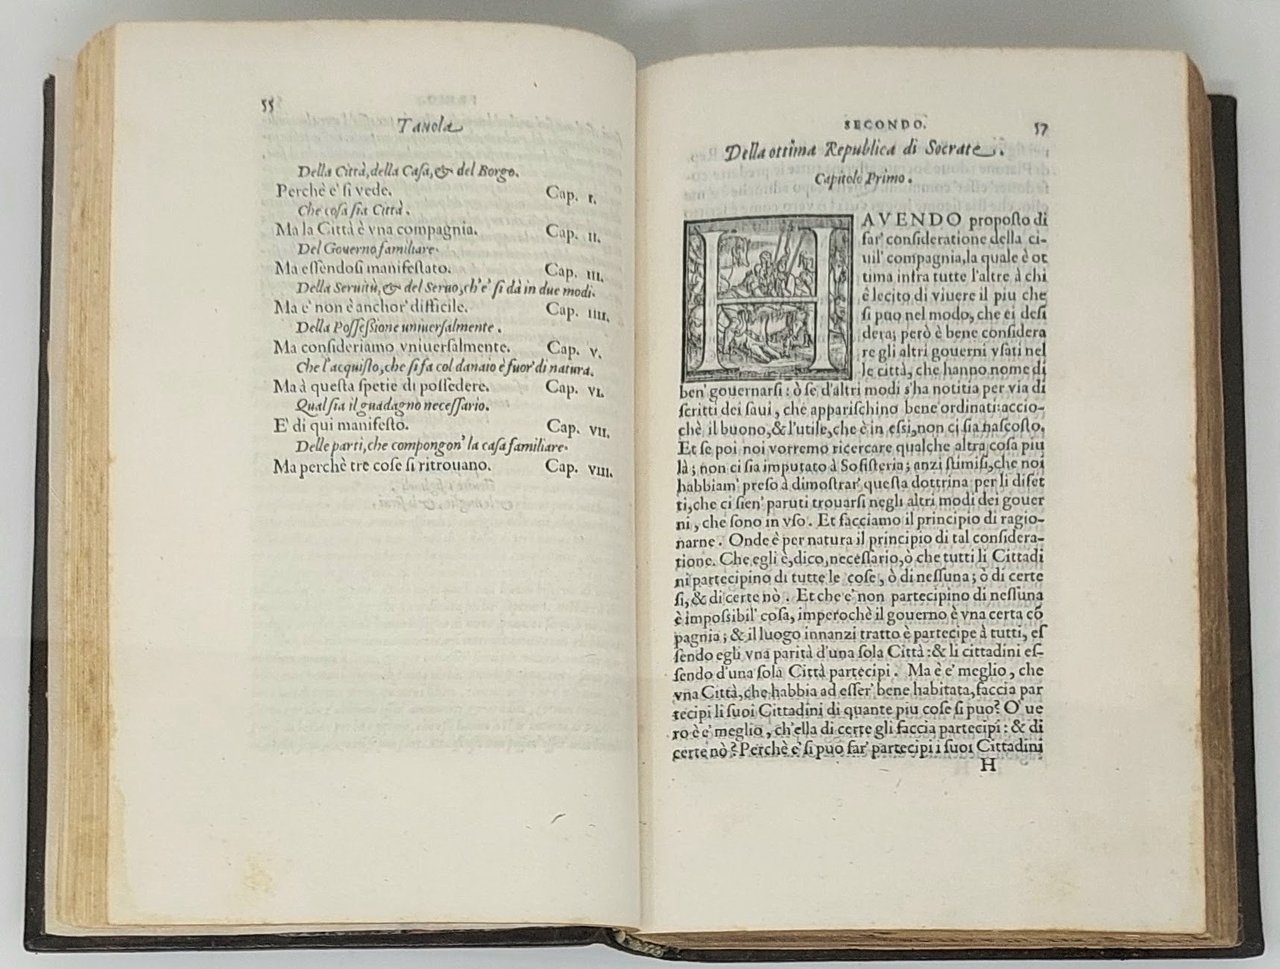 55
Tauola
Della Città, della Casa, & del Borgo.
Perchè e' si vede. Cap. I.
Che cosa sia Città.
Ma la Città è vna compagnia. Cap. II.
Del Gouerno familiare.
Ma essendosi manifestato. Cap. III.
Della Seruitù, & del Seruo, ch'e' si dà in due modi.
Ma e' non è anchor' difficile. Cap. IIII.
Della Possessione uniuersalmente.
Ma consideriamo vniuersalmente. Cap. V.
Che l'acquisto, che si fa col danaio è fuor' di natura.
Ma à questa spetie di possedere. Cap. VI.
Qual sia il guadagno necessario.
E' di qui manifesto. Cap. VII.
Delle parti, che compongon' la casa familiare.
Ma perchè tre cose si ritrouano. Cap. VIII.
SECONDO. 57
Della ottima Republica di Socrate.
Capitolo Primo.
HAVENDO proposto di
far' consideratione della ci-
uil' compagnia, la quale è ot
tima infra tutte l'altre à chi
è lecito di viuere il piu che
si può nel modo, che ei desi
dera; però è bene considera
re gli altri gouerni vsati nel
le città, che hanno nome di
ben' gouernarsi: ò se d'altri modi s'ha notitia per via di
scritti dei saui, che apparischino bene ordinati: accio-
chè il buono, & l'utile, che è in essi, non ci sia nascosto.
Et se poi noi vorremo ricercare qualche altra cosa piu
là; non ci sia imputato à Sofisteria; anzi stimisi, che noi
habbiam' preso à dimostrar' questa dottrina per li difet
ti, che ci sien' paruti trouarsi negli altri modi dei gouer
ni, che sono in vso. Et facciamo il principio di ragio-
narne. Onde è per natura il principio di tal considera-
tione. Che egli è, dico, necessario, ò che tutti li Cittadi
ni partecipino di tutte le cose, ò di nessuna; ò di certe
si, & di certe nò. Et che e' non partecipino di nessuna
è impossibil' cosa, imperochè il gouerno è vna certa cō
pagnia; & il luogo innanzi tratto è partecipe à tutti, es
sendo egli vna parità d'una sola Città: & li cittadini es-
sendo d'una sola Città partecipi. Ma è e' meglio, che
vna Città, che habbia ad esser' bene habitata, faccia par
tecipi li suoi Cittadini di quante piu cose si puo? O' ue
ro è e' meglio, ch'ella di certe gli faccia partecipi: & di
certe nò? Perchè e' si può far' partecipi i suoi Cittadini
H